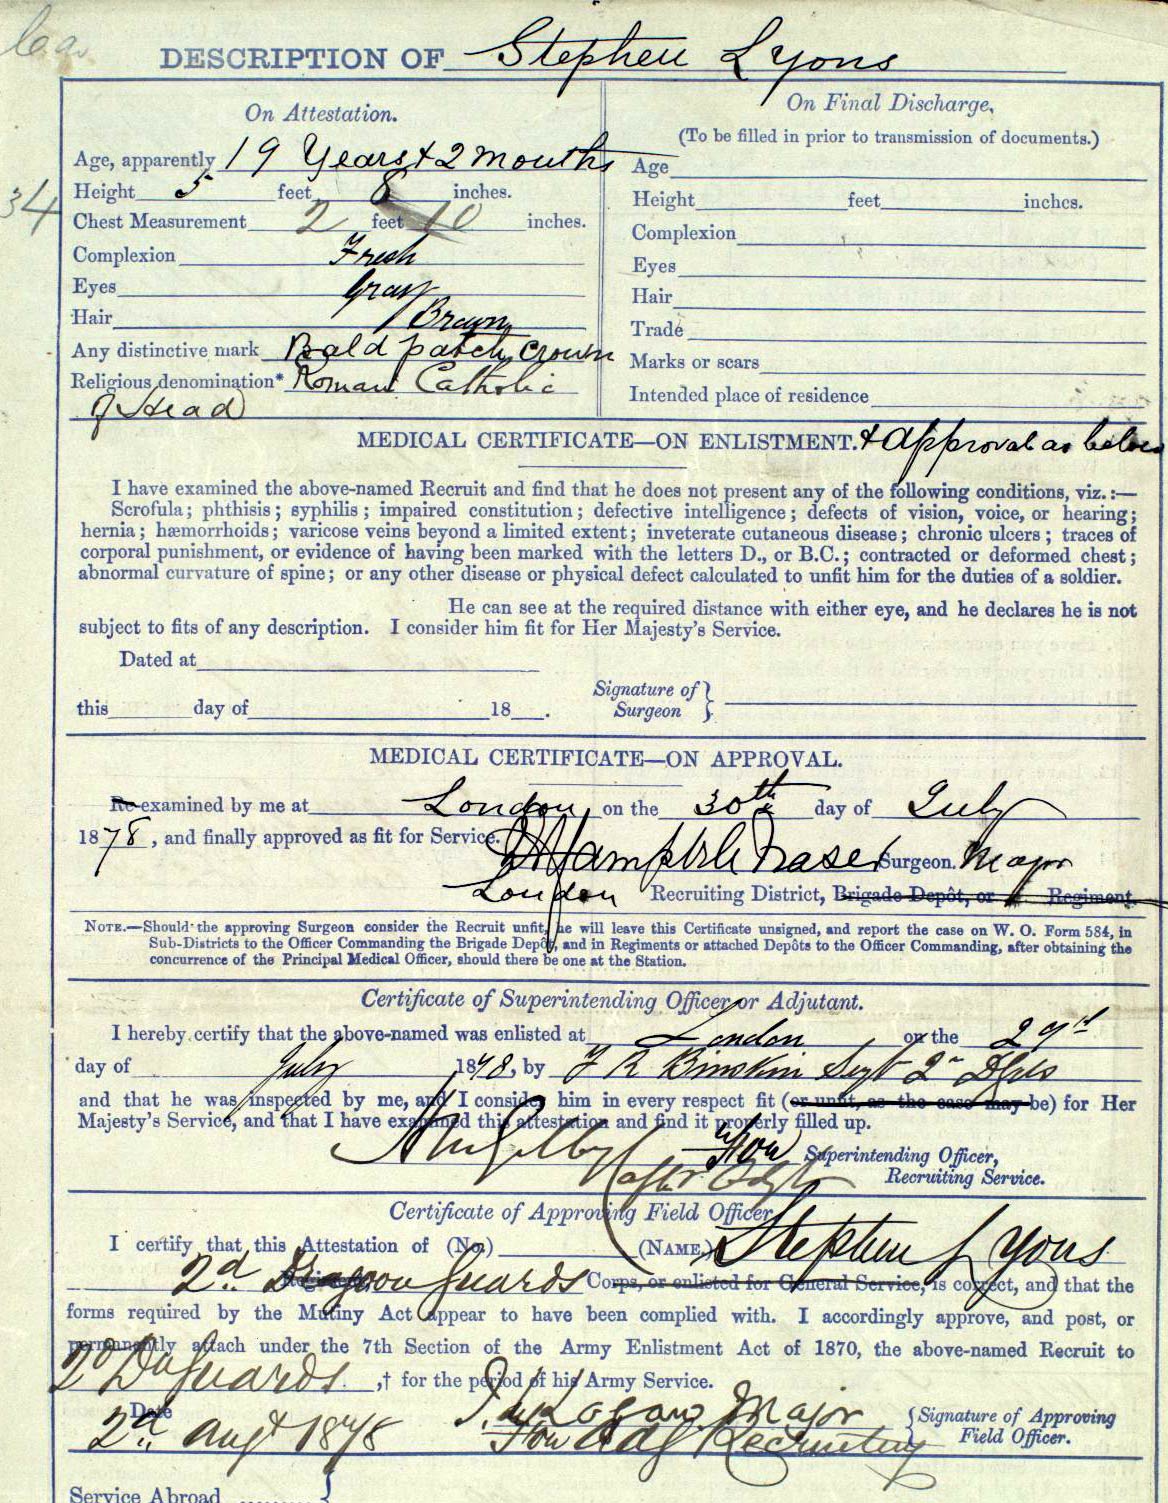 DESCRIPTION OF Stephen Lyons
On Attestation.
Age, apparently 19 Years & 2 months
34
Height 5 feet 8 inches.
Chest Measurement 2 feet 10 inches.
Complexion Fresh
Eyes Gray
Hair Brown
Any distinctive mark Bald patch, Crown
Religious denomination* Roman Catholic
of Head
On Final Discharge.
(To be filled in prior to transmission of documents.)
Age
Height feet inches.
Complexion
Eyes
Hair
Trade
Marks or scars
Intended place of residence
MEDICAL CERTIFICATE—ON ENLISTMENT. & approval as below
I have examined the above-named Recruit and find that he does not present any of the following conditions, viz.:—
Scrofula; phthisis; syphilis; impaired constitution; defective intelligence; defects of vision, voice, or hearing;
hernia; hæmorrhoids; varicose veins beyond a limited extent; inveterate cutaneous disease; chronic ulcers; traces of
corporal punishment, or evidence of having been marked with the letters D., or B.C.; contracted or deformed chest;
abnormal curvature of spine; or any other disease or physical defect calculated to unfit him for the duties of a soldier.
He can see at the required distance with either eye, and he declares he is not
subject to fits of any description. I consider him fit for Her Majesty's Service.
Dated at
this day of 18 .
Signature of
Surgeon
MEDICAL CERTIFICATE—ON APPROVAL.
Re-examined by me at London, on the 30th day of July
1878, and finally approved as fit for Service.
Fraser Surgeon. Major
London Recruiting District, Brigade Depôt, or Regiment.
NOTE.—Should the approving Surgeon consider the Recruit unfit, he will leave this Certificate unsigned, and report the case on W. O. Form 584, in
Sub-Districts to the Officer Commanding the Brigade Depôt, and in Regiments or attached Depôts to the Officer Commanding, after obtaining the
concurrence of the Principal Medical Officer, should there be one at the Station.
Certificate of Superintending Officer or Adjutant.
I hereby certify that the above-named was enlisted at London on the 29th
day of July 1878, by F R Binskin Sergt 2n Dgds
and that he was inspected by me, and I consider him in every respect fit (or unfit, as the case may be) for Her
Majesty's Service, and that I have examined this attestation and find it properly filled up.
Superintending Officer,
Recruiting Service.
Certificate of Approving Field Officer
I certify that this Attestation of (No.) (NAME) Stephen Lyons
2d Dragoon Guards Corps, or enlisted for General Service, is correct, and that the
forms required by the Mutiny Act appear to have been complied with. I accordingly approve, and post, or
permanently attach under the 7th Section of the Army Enlistment Act of 1870, the above-named Recruit to
2d Dn Guards ,† for the period of his Army Service.
Date
2d Augt 1878
Logan Major
Recruiting
Signature of Approving
Field Officer.
Service Abroad